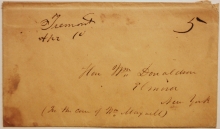 Fremont 5
Apr 12
Hon Wm Donaldson
New York
(In the care of Wm